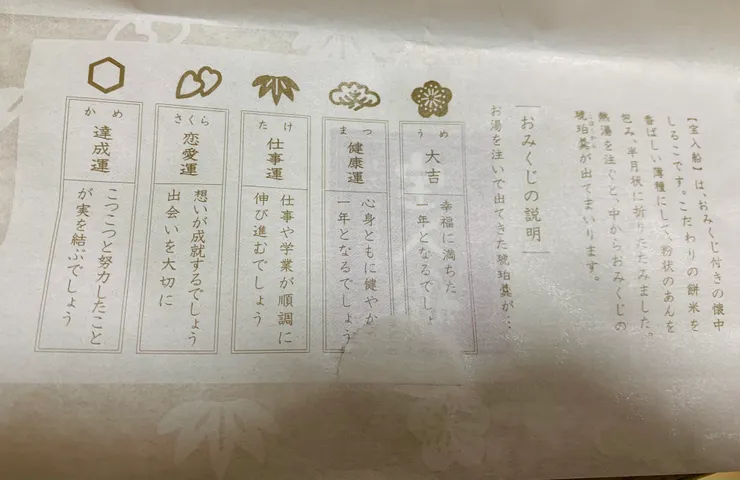 【宝入船】は、おみくじ付きの懐中
しるこです。こだわりの餅米を
香ばしい薄種にして、粉状のあんを
包み、半月状に折りたたみました。
熱湯を注ぐと、中からおみくじの
琥珀羹が出てまいります。
おみくじの説明
お湯を注いで出てきた琥珀羹が…
うめ
大吉
幸福に満ちた
一年となるでしょ
まつ
健康運
心身ともに健やか
一年となるでしょう
たけ
仕事運
仕事や学業が順調に
伸び進むでしょう
さくら
恋愛運
想いが成就するでしょう
出会いを大切に
かめ
達成運
こつこつと努力したこと
が実を結ぶでしょう